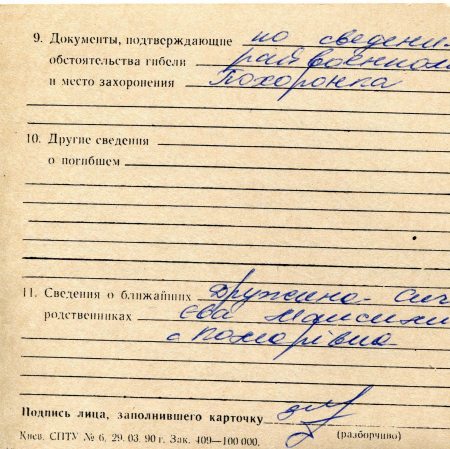 9. Документы, подтверждающие по сведени
обстоятельства гибели райвоенком
и место захоронения Похоронка
10. Другие сведения
о погибшем
11. Сведения о ближайших Дружина - Сич
родственниках
с Комарівка
Подпись лица, заполнившего карточку
Киев. СПТУ № 6. 29. 03. 90 г. Зак. 409—100 000. (разборчиво)